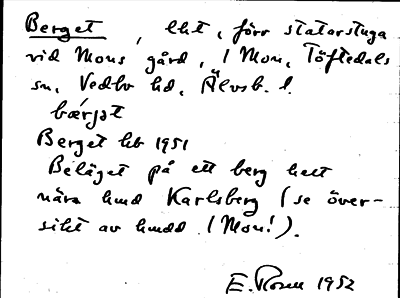 Berget, lht, förr statarstuga
vid Mons gård, / Mon, Töftedals
sn, Vedbo hd, Älvsb. l.
bærjət
Berget hb 1951
Beläget på ett berg helt
nära hmd Karlsberg (se över-
sikt av hmdd / Mon!).
E. Rosen 1952